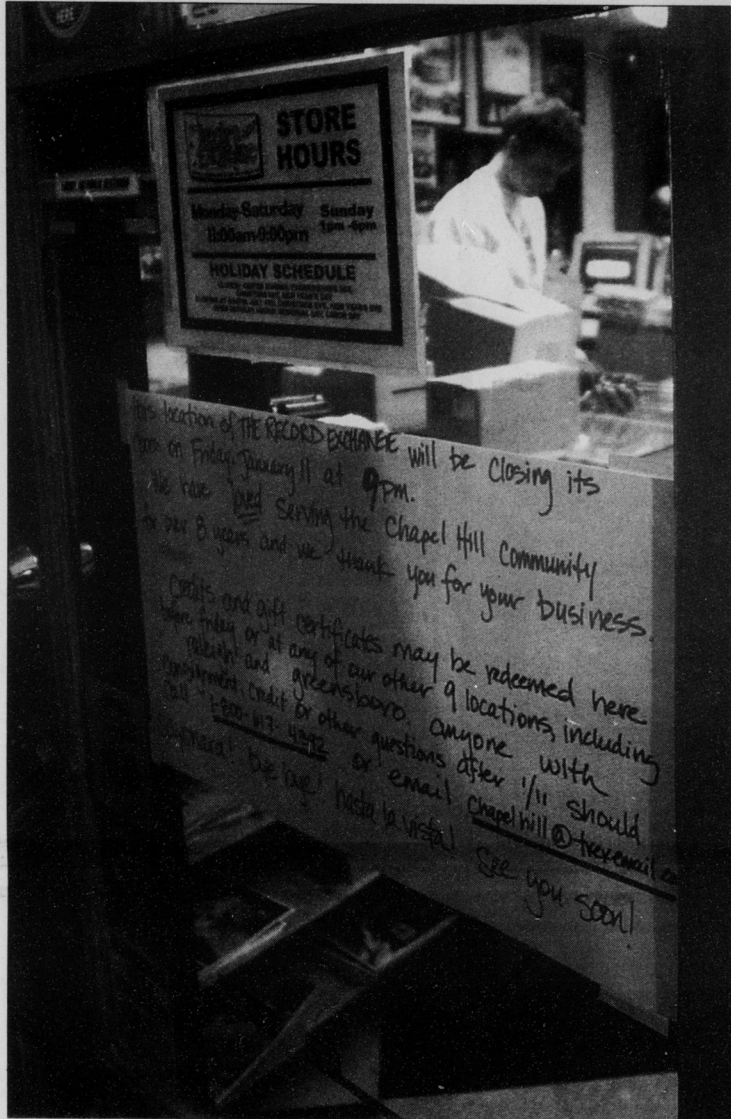 HERE
STORE
HOURS
Monday-Saturday
11:00am-9:00pm
Sunday
1pm-6pm
HOLIDAY SCHEDULE
This location of THE RECORD EXCHANGE will be closing its
doors on Friday, January 11 at 9pm.
We have loved serving the Chapel Hill Community
for over 8 years and we thank you for your business.
Credits and gift certificates may be redeemed here
before friday or at any of our other 9 locations, including
raleigh and greensboro. anyone with
consignment, credit or other questions after 1/11 should
call or email chapelhill@trexemail
Sayonara! bye bye! hasta la vista! See you soon!